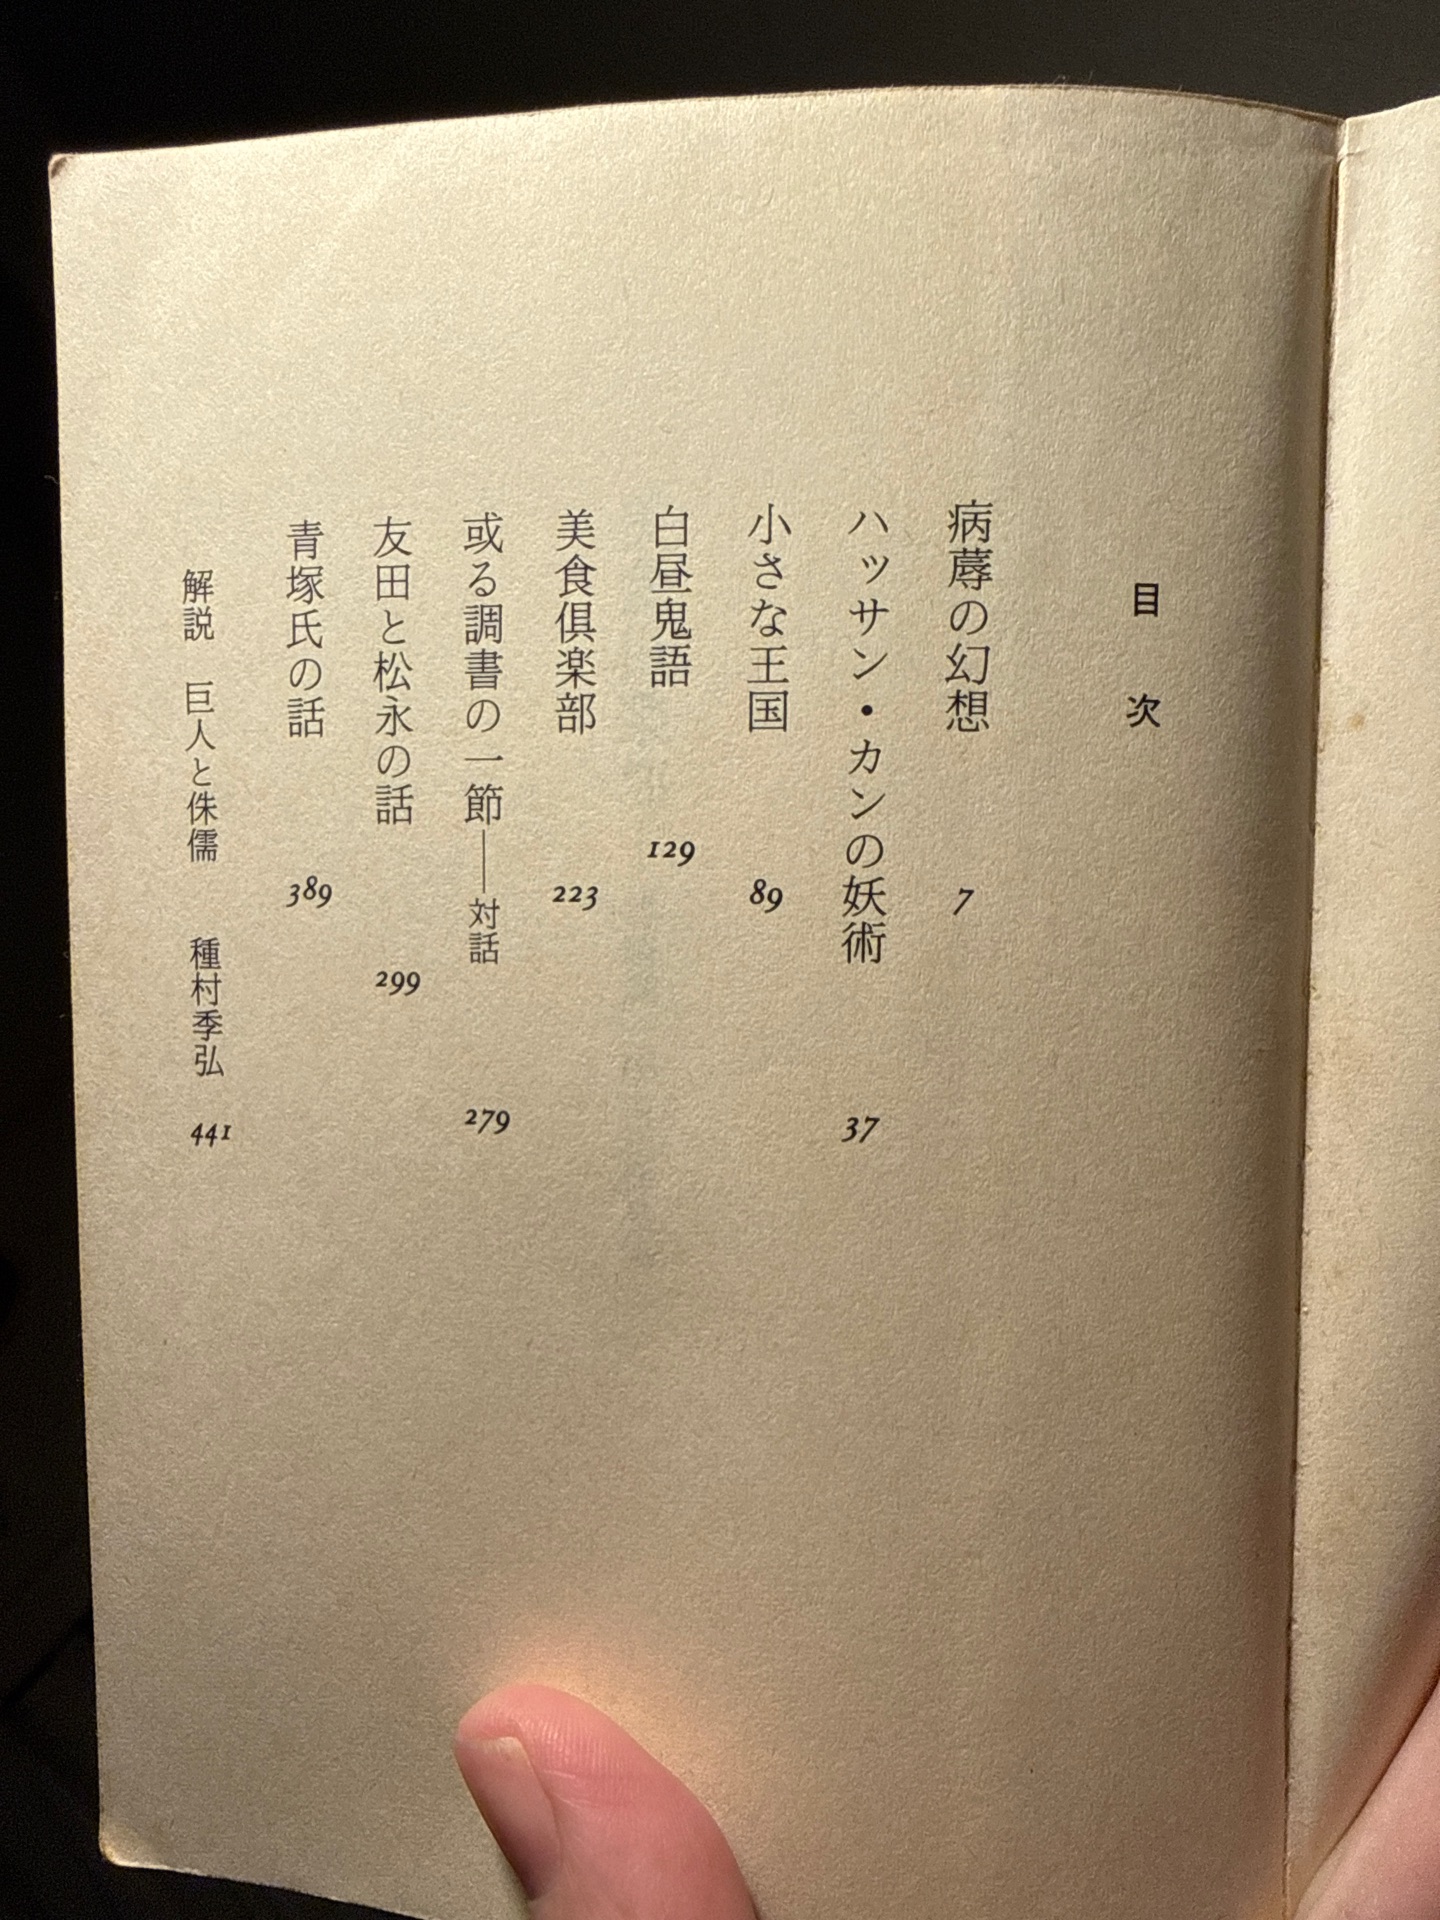 目次
病蓐の幻想 7
ハッサン・カンの妖術 37
小さな王国 89
白昼鬼語 129
美食倶楽部 223
或る調書の一節――対話 279
友田と松永の話 299
青塚氏の話 389
解説 巨人と侏儒 種村季弘 441